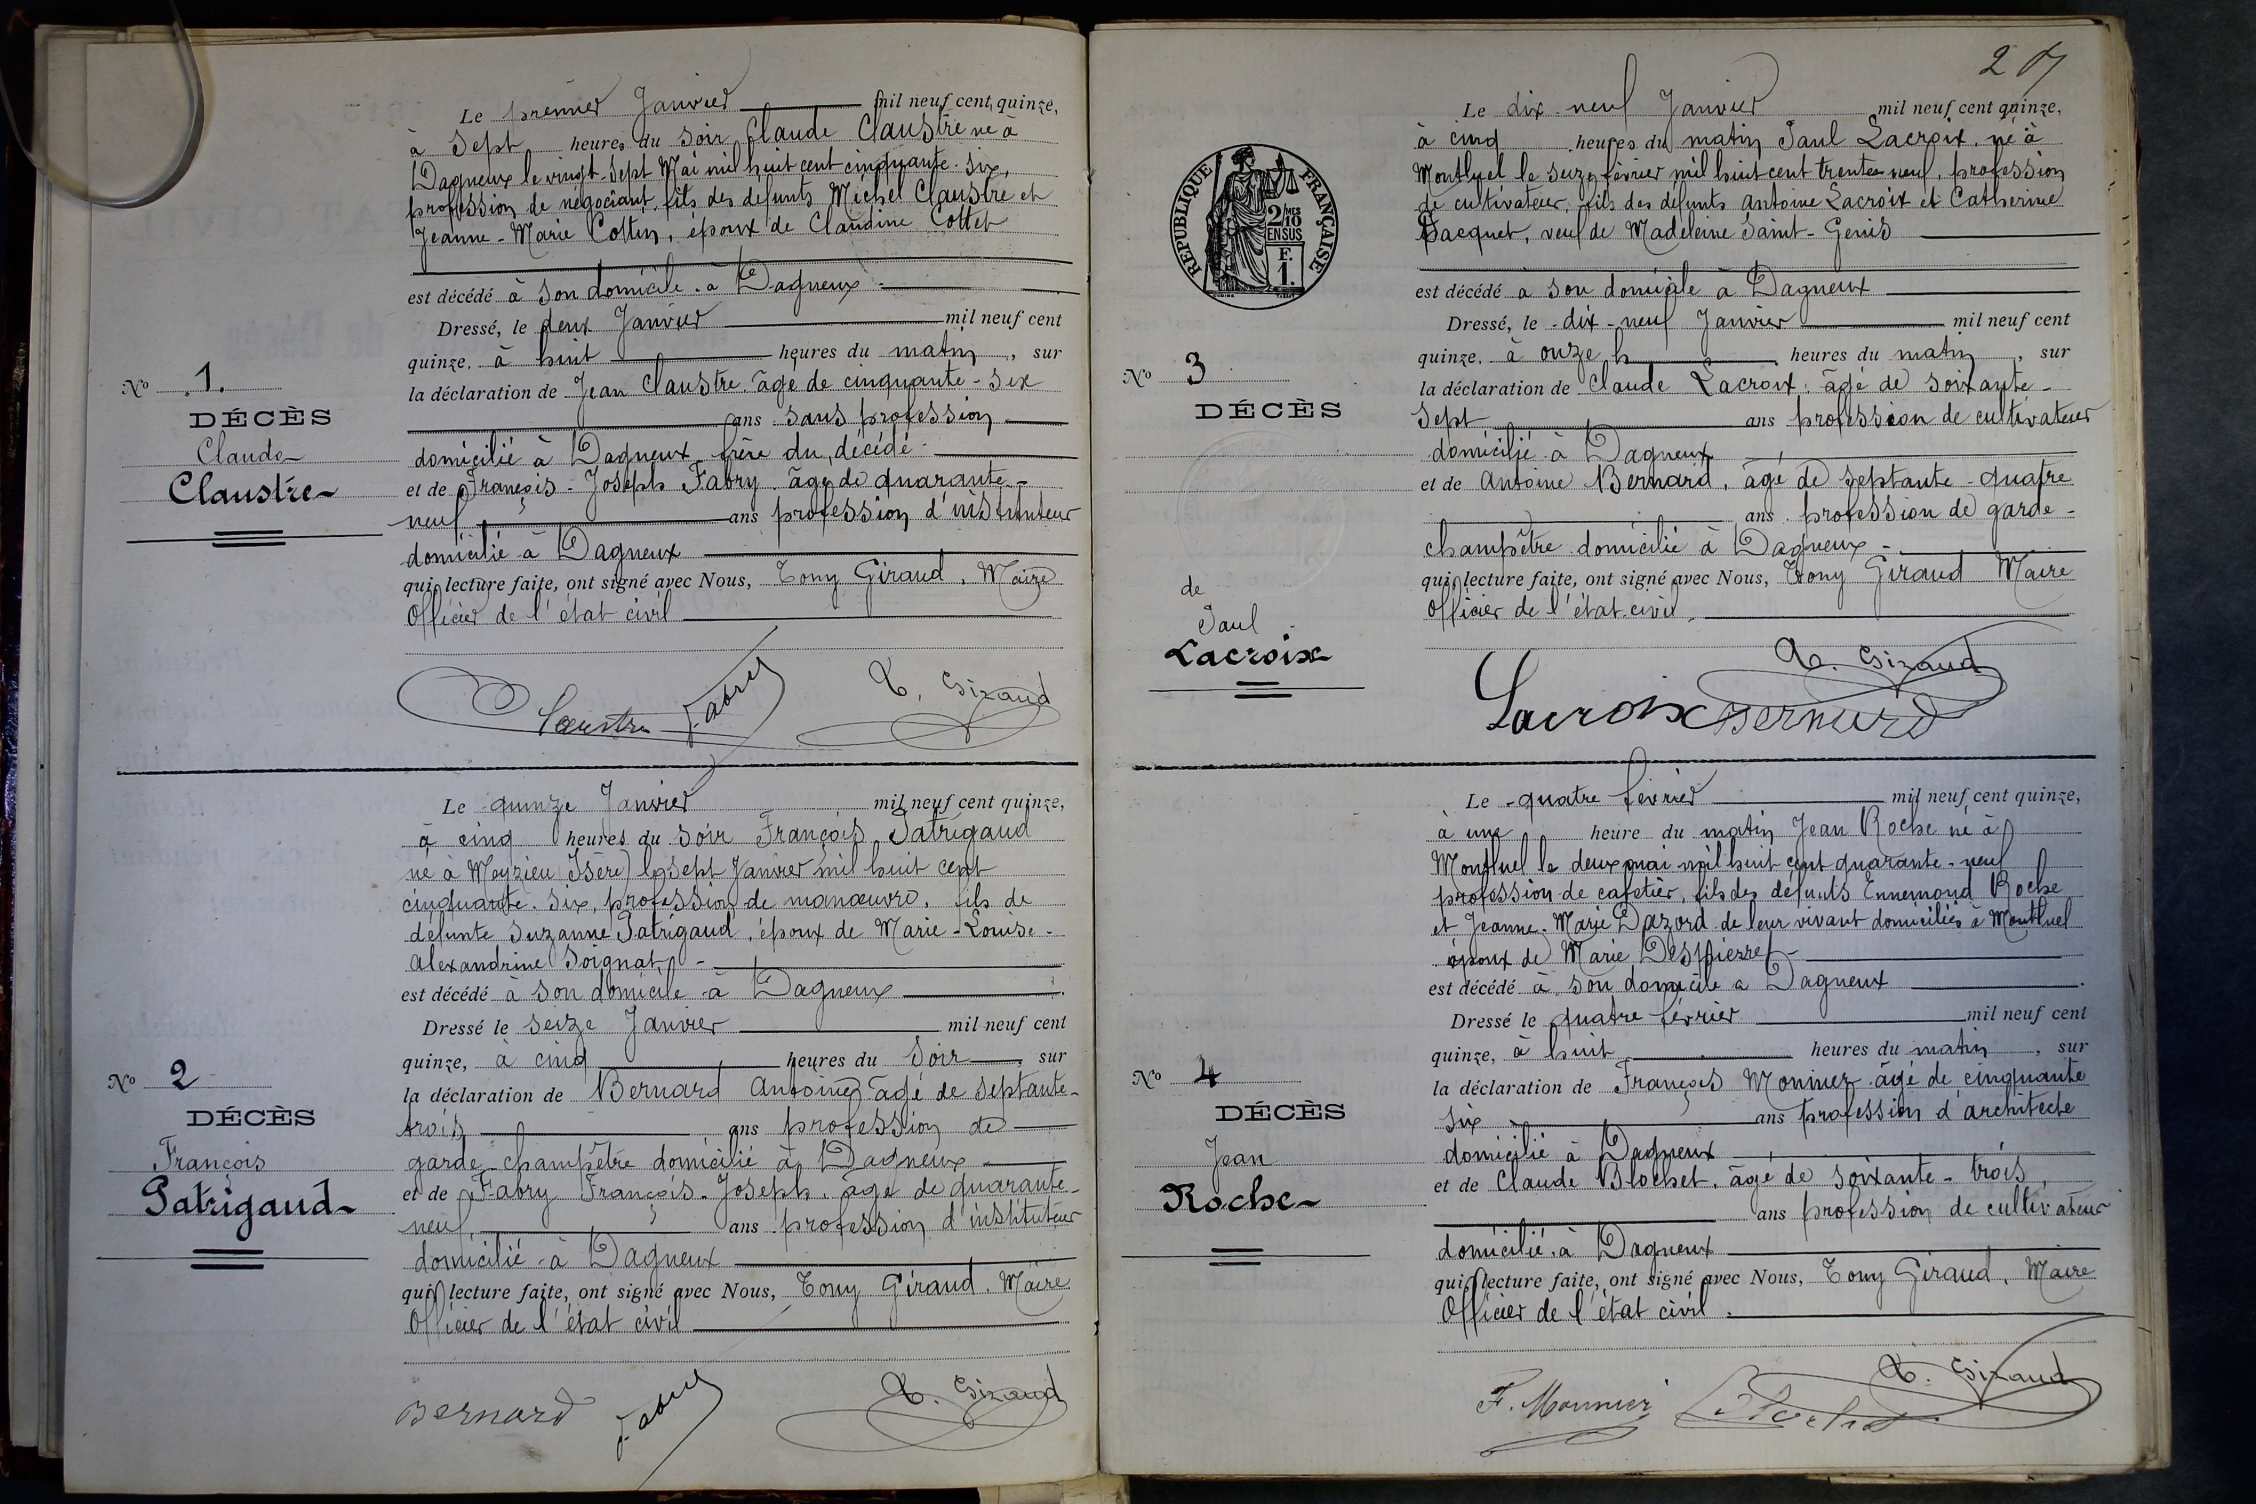 Le premier Janvier mil neuf cent quinze,
à sept heures du soir Claude Claustre né à
Dagneux le vingt-sept Mai mil huit cent cinquante-six,
profession de négociant, fils des défunts Michel Claustre et
Jeanne-Marie Cottin, époux de Claudine Cottet
est décédé à son domicile à Dagneux
Dressé, le deux Janvier mil neuf cent
quinze, à huit heures du matin, sur
la déclaration de Jean Claustre âgé de cinquante-six
ans sans profession
domicilié à Dagneux frère du décédé
et de François-Joseph Fabry âgé de quarante-
neuf ans profession d'instituteur
domicilié à Dagneux
qui, lecture faite, ont signé avec Nous, Tony Giraud, Maire
Officier de l'état civil
No 1.
DÉCÈS
Claude
Claustre
Claustre Fabry T. Giraud
Le quinze Janvier mil neuf cent quinze,
à cinq heures du soir François Patrigaud
né à Meyzieu (Isère) le sept Janvier mil huit cent
cinquante-six, profession de manœuvre, fils de
défunte Suzanne Patrigaud, époux de Marie-Louise-
Alexandrine Soignat
est décédé à son domicile à Dagneux
Dressé le seize Janvier mil neuf cent
quinze, à cinq heures du soir, sur
la déclaration de Bernard Antoine âgé de septante-
trois ans profession de
garde-champêtre domicilié à Dagneux
et de Fabry François-Joseph, âgé de quarante-
neuf ans profession d'instituteur
domicilié à Dagneux
qui, lecture faite, ont signé avec Nous, Tony Giraud, Maire
Officier de l'état civil
No 2
DÉCÈS
François
Patrigaud
Bernard Fabry T. Giraud
2
RÉPUBLIQUE FRANÇAISE
2/MES
10
EN SUS
F.
1.
Le dix-neuf Janvier mil neuf cent quinze,
à cinq heures du matin Paul Lacroix, né à
Montluel le seize février mil huit cent trente-neuf, profession
de cultivateur, fils des défunts Antoine Lacroix et Catherine
Pacquet, veuf de Madeleine Saint-Genis
est décédé à son domicile à Dagneux
Dressé, le dix-neuf Janvier mil neuf cent
quinze, à onze h heures du matin, sur
la déclaration de Claude Lacroix âgé de soixante-
sept ans profession de cultivateur
domicilié à Dagneux
et de Antoine Bernard, âgé de septante-quatre
ans profession de garde-
champêtre domicilié à Dagneux
qui, lecture faite, ont signé avec Nous, Tony Giraud Maire
Officier de l'état civil
No 3
DÉCÈS
de
Paul
Lacroix
T. Giraud
Lacroix Bernard
Le quatre février mil neuf cent quinze,
à une heure du matin Jean Roche né à
Montluel le deux mai mil huit cent quarante-neuf
profession de cafetier, fils des défunts Ennemond Roche
et Jeanne-Marie Dazord de leur vivant domiciliés à Montluel
époux de Marie Despierre
est décédé à son domicile à Dagneux
Dressé le quatre février mil neuf cent
quinze, à huit heures du matin, sur
la déclaration de François Monnier âgé de cinquante
six ans profession d'architecte
domicilié à Dagneux
et de Claude Blochet, âgé de soixante-trois,
ans profession de cultivateur
domicilié à Dagneux
qui, lecture faite, ont signé avec Nous, Tony Giraud, Maire
Officier de l'état civil
No 4
DÉCÈS
Jean
Roche
T. Giraud
F. Monnier Blochet